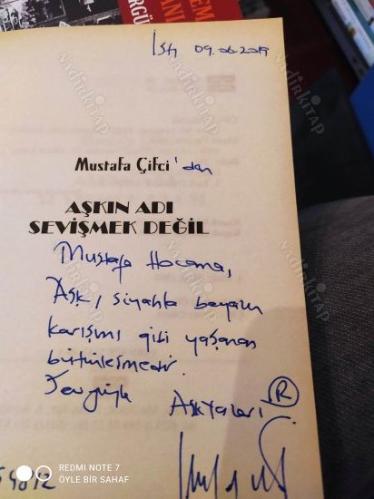 İst 09.06.2019
Mustafa Çifci 'den
AŞKIN ADI
SEVİŞMEK DEĞİL
Mustafa Hocama,
Aşk, siyahla beyazın
karışımı gibi yaşanan
bütünleşmedir.
Sevgiyle
Aşkyaları R
REDMI NOTE 7
ÖYLE BİR SAHAF
nadirkitap